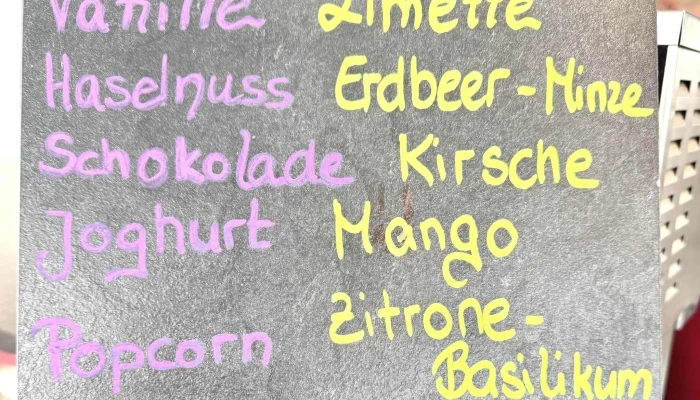 Vanille Limette
Haselnuss Erdbeer-Minze
Schokolade Kirsche
Joghurt Mango
Popcorn Zitrone-
Basilikum